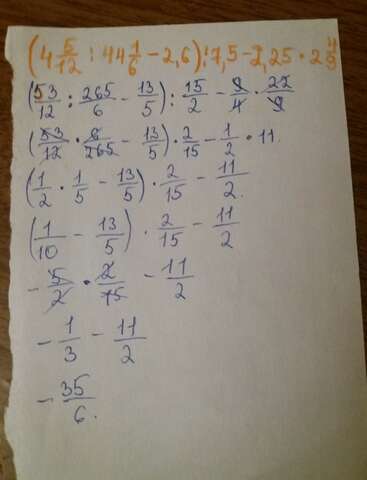 (4 5/12 : 44 1/6 - 2,6) : 7,5 - 2,25 · 2 4/9
(53/12 : 265/6 - 13/5) : 15/2 - 9/4 · 22/9
(53/12 · 6/265 - 13/5) · 2/15 - 1/2 · 11
(1/2 · 1/5 - 13/5) · 2/15 - 11/2.
(1/10 - 13/5) · 2/15 - 11/2
- 5/2 · 2/15 - 11/2
- 1/3 - 11/2
- 35/6.